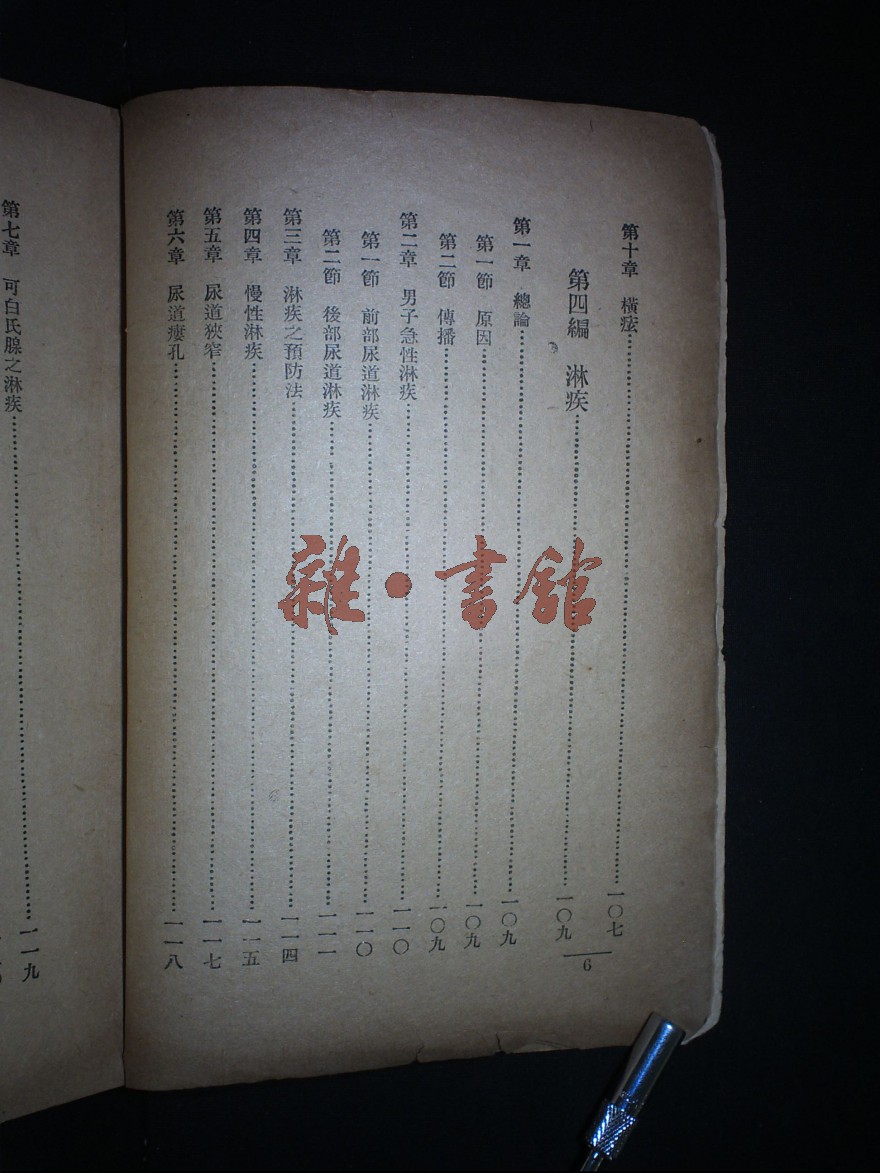 第十章　橫痃……一〇七
第四編　淋疾……一〇九
第一章　總論……一〇九
第一節　原因……一〇九
第二節　傳播……一〇九
第二章　男子急性淋疾……一一〇
第一節　前部尿道淋疾……一一〇
第二節　後部尿道淋疾……一一一
第三章　淋疾之預防法……一一四
第四章　慢性淋疾……一一五
第五章　尿道狹窄……一一七
第六章　尿道瘻孔……一一八
6
第七章　可白氏腺之淋疾……一一九
雜·書館